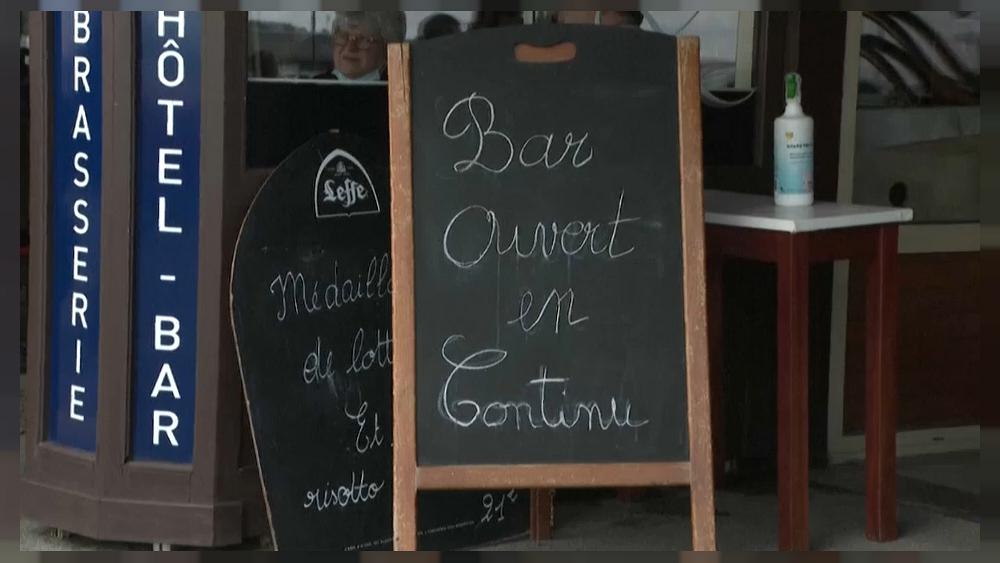 BRASSERIE
HÔTEL - BAR
Leffe
Médaill
de lott
Et
risotto
21€
Bar
Ouvert
en
Continu